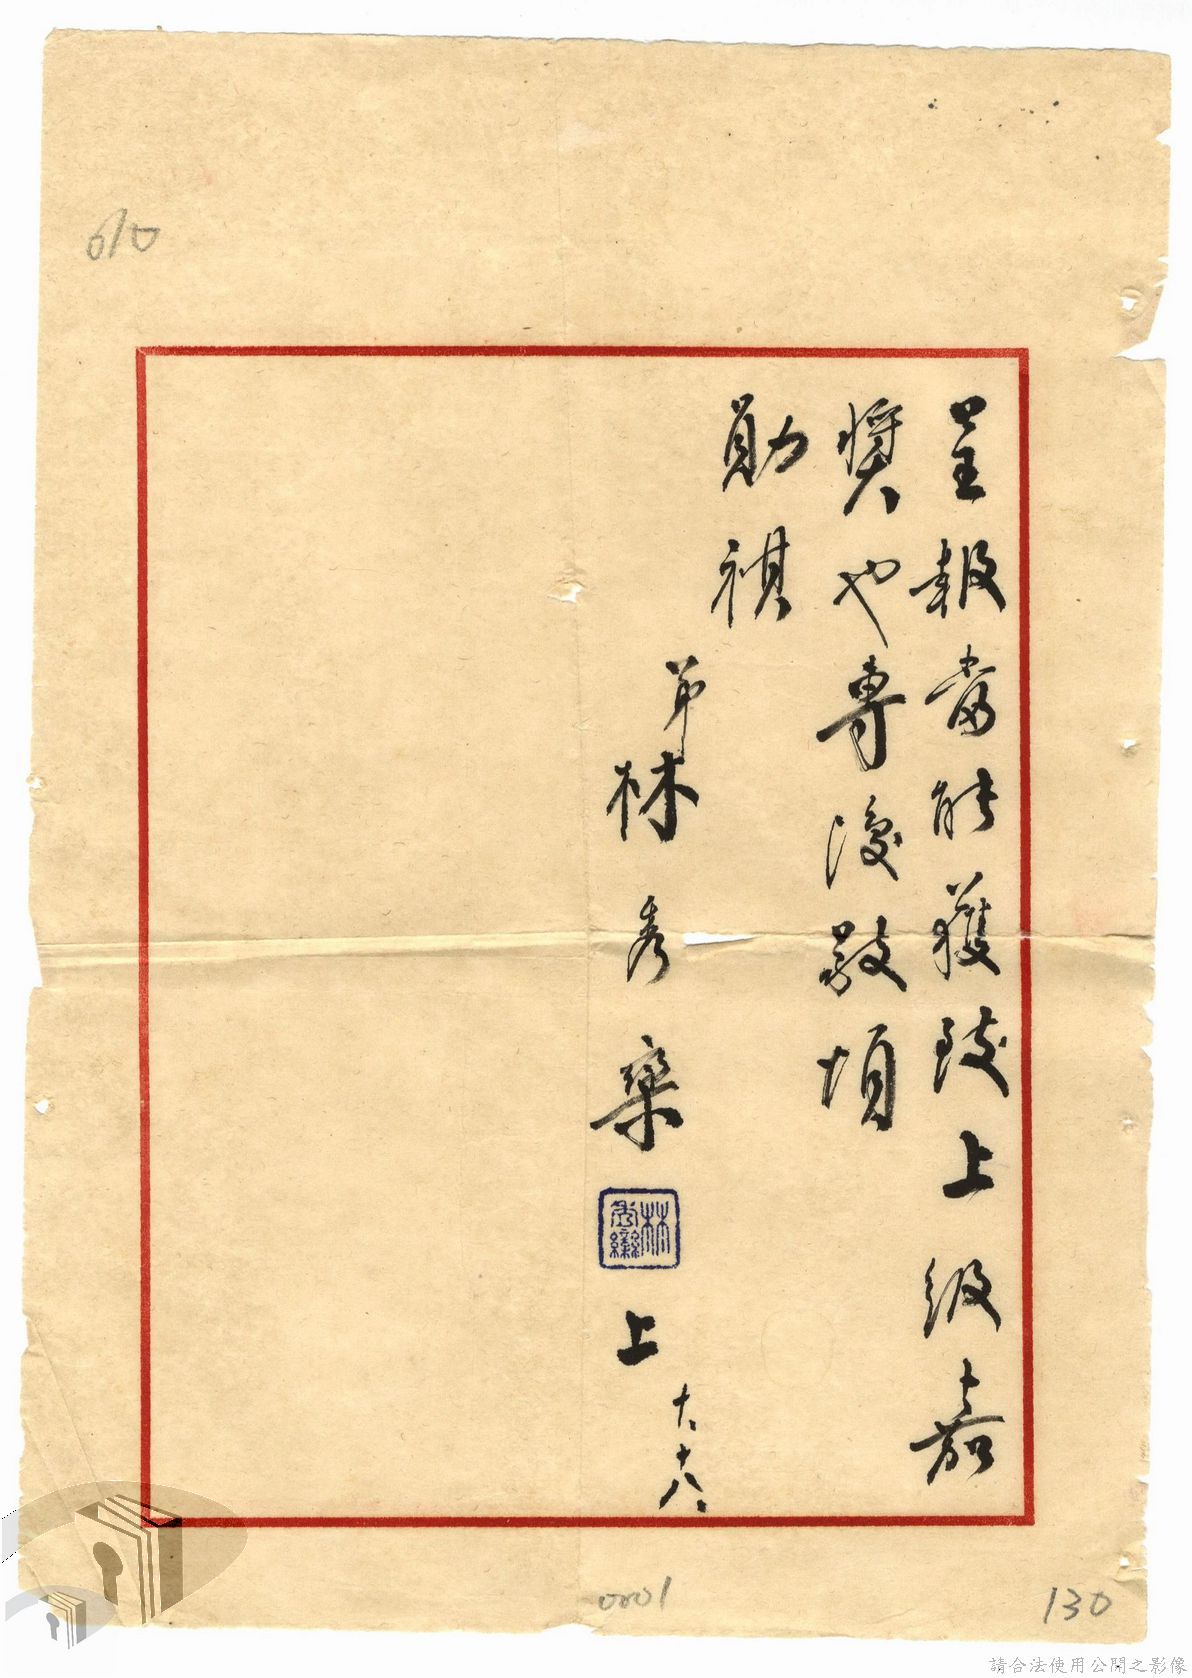 呈報當能獲致上級嘉
獎也專復敬頌
勛祺
弟林秀欒上
十、十八、
林秀欒
010
0001
130
請合法使用公開之影像